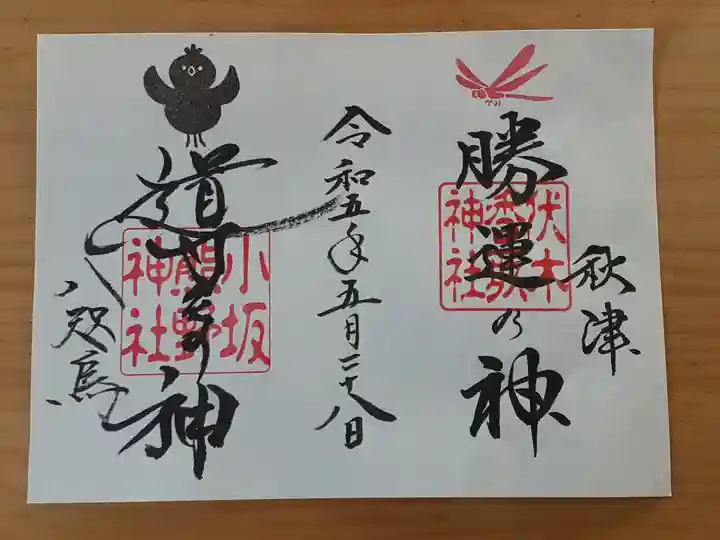 秋津
勝運乃神
伏木
香取
神社
令和五年五月二十八日
道
神
小坂
熊野
神社
八咫烏